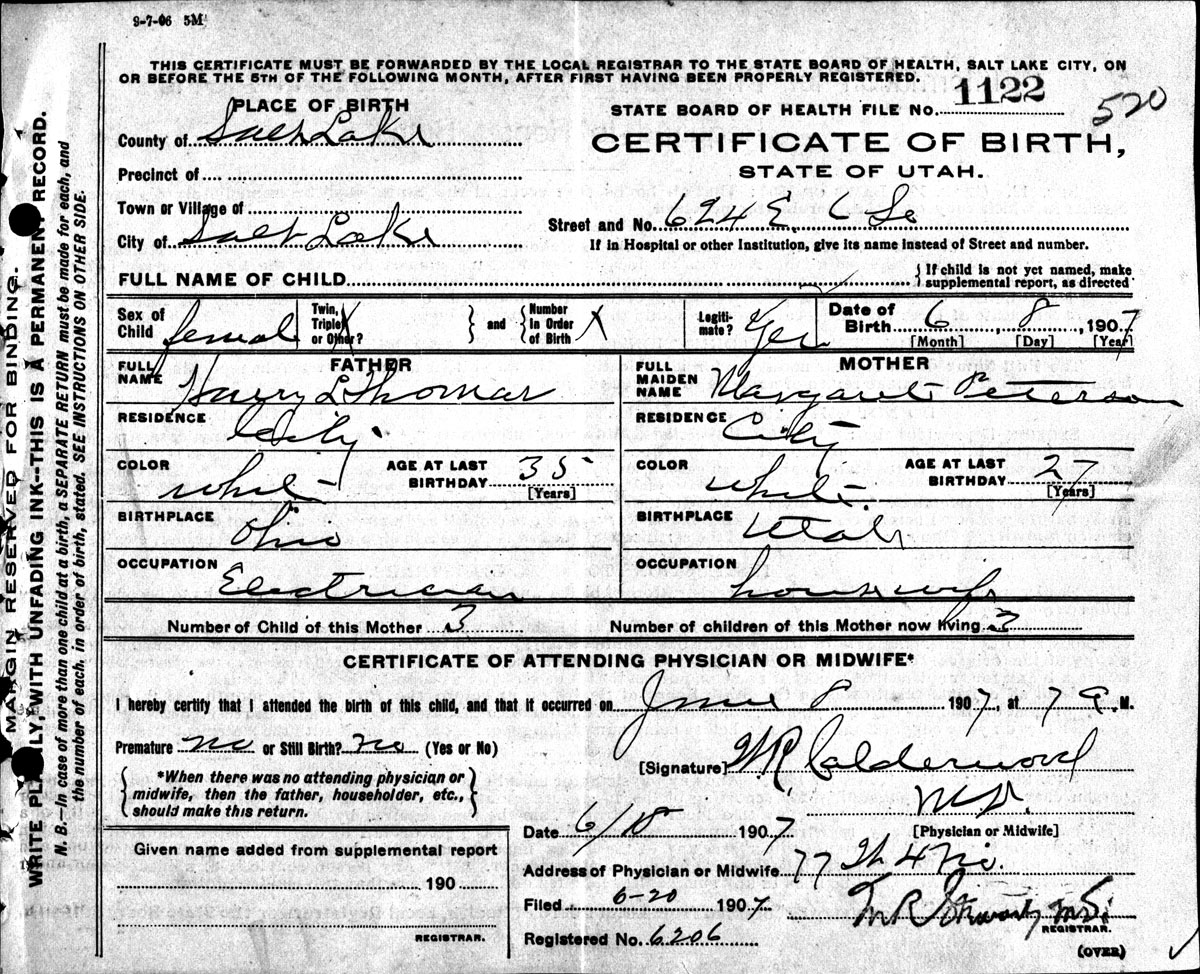 9-7-06 5M
THIS CERTIFICATE MUST BE FORWARDED BY THE LOCAL REGISTRAR TO THE STATE BOARD OF HEALTH, SALT LAKE CITY, ON
OR BEFORE THE 5TH OF THE FOLLOWING MONTH, AFTER FIRST HAVING BEEN PROPERLY REGISTERED.
PLACE OF BIRTH
STATE BOARD OF HEALTH FILE No. 1122
520
County of Salt Lake
CERTIFICATE OF BIRTH,
Precinct of
STATE OF UTAH.
Town or Village of
Street and No. 624 E.
City of Salt Lake
If in Hospital or other Institution, give its name instead of Street and number.
FULL NAME OF CHILD
If child is not yet named, make
supplemental report, as directed
Sex of Child female
Twin, Triplet or Other? X
and
Number in Order of Birth X
Legitimate? Yes
Date of Birth 6 8, 1907
[Month] [Day] [Year]
FATHER
MOTHER
FULL NAME Harry L Thomas
FULL MAIDEN NAME Margaret Peterson
RESIDENCE City
RESIDENCE City
COLOR white
AGE AT LAST BIRTHDAY 35 [Years]
COLOR white
AGE AT LAST BIRTHDAY 27 [Years]
BIRTHPLACE Ohio
BIRTHPLACE Utah
OCCUPATION Electrician
OCCUPATION housewife
Number of Child of this Mother 3
Number of children of this Mother now living 3
CERTIFICATE OF ATTENDING PHYSICIAN OR MIDWIFE*
I hereby certify that I attended the birth of this child, and that it occurred on June 8 1907, at 7 a. M.
Premature no or Still Birth? no (Yes or No)
[Signature] W R Calderwood
M.D.
[Physician or Midwife]
*When there was no attending physician or
midwife, then the father, householder, etc.,
should make this return.
Date 6/18 1907
Address of Physician or Midwife 77
Filed 6-20 1907
M.D.
REGISTRAR.
Registered No. 6206
(OVER)
Given name added from supplemental report
190
REGISTRAR.
MARGIN RESERVED FOR BINDING.
WRITE PLAINLY, WITH UNFADING INK--THIS IS A PERMANENT RECORD.
N. B.—In case of more than one child at a birth, a SEPARATE RETURN must be made for each, and
the number of each, in order of birth, stated. SEE INSTRUCTIONS ON OTHER SIDE.